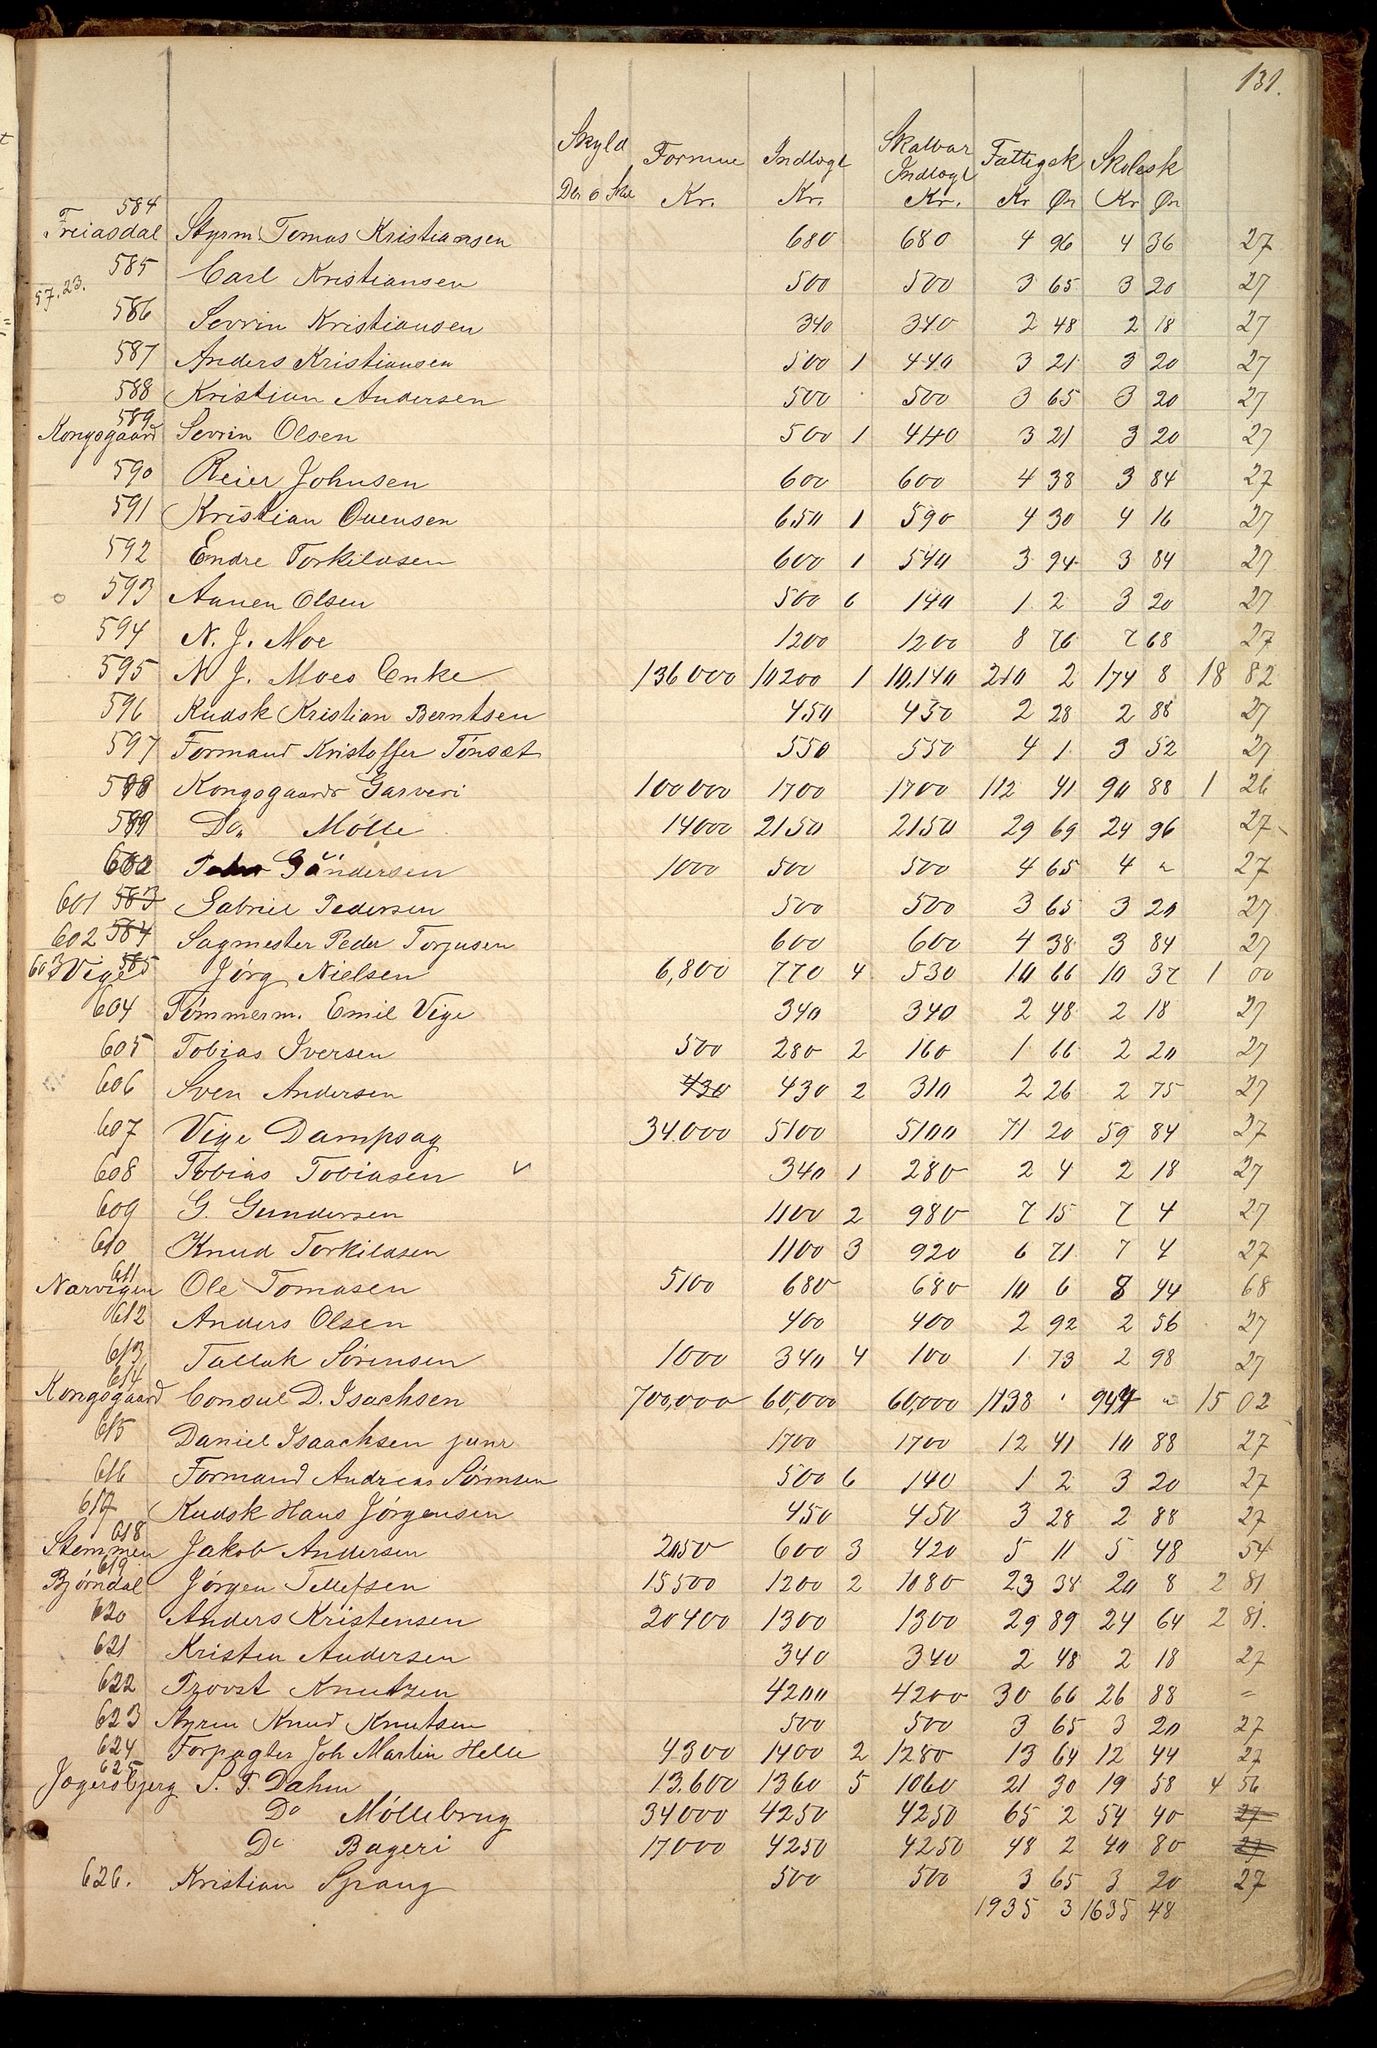 131.
Skyld Formue Indtægt Skatbar Indtægt Fattigsk Skolesk
Kr. Kr. Kr. Kr Ør Kr Ør
584
Freiasdal Styrm. Tomas Kristiansen 680 680 4 96 4 36 27
585 Carl Kristiansen 500 500 3 65 3 20 27
57.23.
586 Sevrin Kristiansen 340 340 2 48 2 18 27
587 Anders Kristiansen 500 1 440 3 21 3 20 27
588 Kristian Andersen 500 500 3 65 3 20 27
589
Kongsgaard Sevrin Olsen 500 1 440 3 21 3 20 27
590 Reier Johnsen 600 600 4 38 3 84 27
591 Kristian Ovensen 650 1 590 4 30 4 16 27
592 Endre Torkildsen 600 1 540 3 94 3 84 27
593 Aanen Olsen 500 6 140 1 2 3 20 27
594 N. J. Moe 1200 1200 8 76 7 68 27
595 N. J. Moes Enke 136000 10200 1 10,140 210 2 174 8 18 82
596 Kudsk Kristian Berntsen 450 450 2 28 2 88 27
597 Formand Kristoffer Tönsæt 550 550 4 1 3 52 27
598 Kongsgaards Garveri 100000 1700 1700 112 41 90 88 1 26
599 Do Mölle 14000 2150 2150 29 69 24 96 27
600 Gundersen 1000 500 500 4 65 4 " 27
601 583 Gabriel Pedersen 500 500 3 65 3 20 27
602 584 Sagmester Peder Torjusen 600 600 4 38 3 84 27
603 Vige 585 Jörg Nielsen 6,800 770 4 530 10 66 10 37 1 00
604 Tømmerm. Emil Vige 340 340 2 48 2 18 27
605 Tobias Iversen 500 280 2 160 1 66 2 20 27
606 Sven Andersen 430 430 2 310 2 26 2 75 27
607 Vige Dampsag 34.000 5100 5100 71 20 59 84 27
608 Tobias Tobiasen v 340 1 280 2 4 2 18 27
609 G. Gundersen 1100 2 980 7 15 7 4 27
610 Knud Torkildsen 1100 3 920 6 71 7 4 27
611
Narvigen Ole Tomasen 5100 680 680 10 6 8 44 68
612 Anders Olsen 400 400 2 92 2 56 27
613 Tallak Sörensen 1000 340 4 100 1 73 2 98 27
614
Kongsgaard Consul D. Isachsen 700,000 60,000 60,000 1138 " 944 " 15 02
615 Daniel Isaachsen junr 1700 1700 12 41 10 88 27
616 Formand Andreas Sörensen 500 6 140 1 2 3 20 27
617 Kudsk Hans Jörgensen 450 450 3 28 2 88 27
618
Stemmen Jakob Andersen 2050 600 3 420 5 11 5 48 54
619
Bjørndal Jörgen Tellefsen 15500 1200 2 1080 23 38 20 8 2 81
620 Anders Kristensen 20400 1300 1300 29 89 24 64 2 81.
621 Kristen Andersen 340 340 2 48 2 18 27
622 Provst Knutzen 4200 4200 30 66 26 88 "
623 Styrm Knud Knutsen 500 500 3 65 3 20 27
624 Forpagter Joh Martin Helle 4300 1400 2 1280 13 64 12 44 27
625
Jegersbjerg S. F. Dahm 13.600 1360 5 1060 21 30 19 58 4 56
Do Möllebrug 34000 4250 4250 65 2 54 40 27
Do Bageri 17000 4250 4250 48 2 40 80 27
626. Kristian Spang 500 500 3 65 3 20 27
1935 3 1635 48